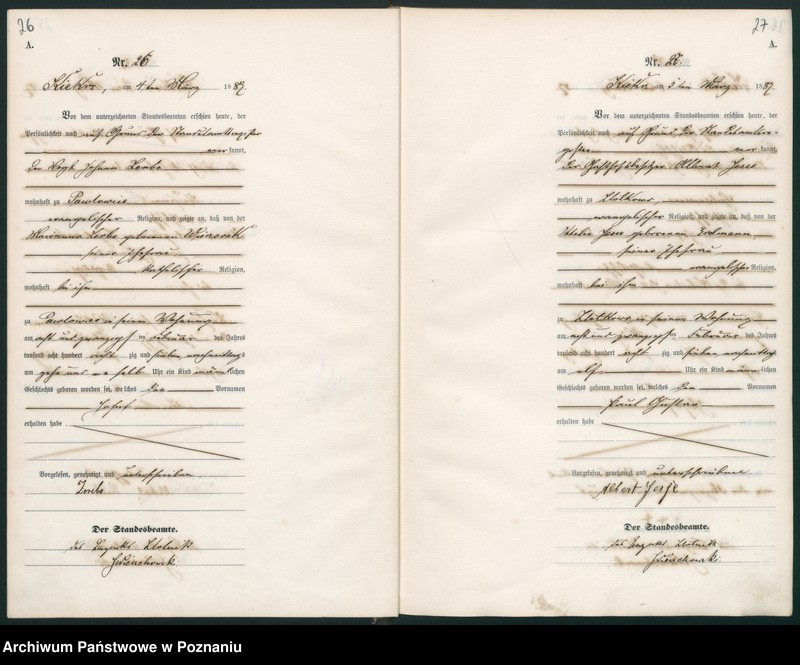 26
A.
Nr. 26
Kiekrz, am 4ten März 1887
Vor dem unterzeichneten Standesbeamten erschien heute, der
Persönlichkeit nach auf Grund der
kannt,
der Vogt Johann
wohnhaft zu Pawlowice
evangelischer Religion, und zeigte an, daß von der
Marianna geborenen
seiner Ehefrau
katholischer Religion,
wohnhaft bei ihm
zu Pawlowice in seiner Wohnung
am acht und zwanzigsten Februar des Jahres
tausend acht hundert acht zig und sieben Vormittags
um zehn und ein halb Uhr ein Kind männlichen
Geschlechts geboren worden sei, welches den Vornamen
Josef
erhalten habe
Vorgelesen, genehmigt und unterschrieben
Der Standesbeamte.
des Bezirks Zlotnik
27
A.
Nr. 27.
Kiekrz am März 1887
Vor dem unterzeichneten Standesbeamten erschien heute, der
Persönlichkeit nach auf Grund der
kannt,
der Albert
wohnhaft zu Zlotkowo,
evangelischer Religion, und zeigte an, daß von der
geborenen Erdmann
seiner Ehefrau
evangelischer Religion,
wohnhaft bei ihm
zu Zlotkowo in seiner Wohnung
am acht und zwanzigsten Februar des Jahres
tausend acht hundert acht zig und sieben
um elf Uhr ein Kind männlichen
Geschlechts geboren worden sei, welches den Vornamen
Paul Gustav
erhalten habe
Vorgelesen, genehmigt und unterschrieben
Albert
Der Standesbeamte.
des Bezirks Zlotnik
Archiwum Państwowe w Poznaniu